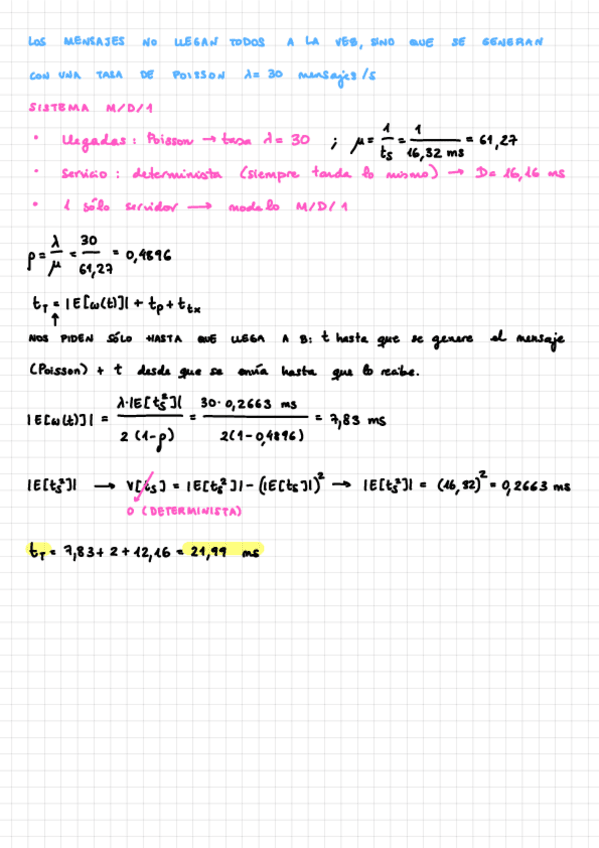 LOS MENSAJES NO LLEGAN TODOS A LA VEB, SINO QUE SE GENERAN
CON UNA TASA DE POISSON λ= 30 mensajes/s
SISTEMA M/D/1
• Llegadas: Poisson → tasa λ= 30 ; μ= 1/ts = 1/16,32 ms = 61,27
• Servicio: determinista (siempre tarda lo mismo) → D= 16,16 ms
• 1 sólo servidor → modelo M/D/1
ρ= λ/μ = 30/61,27 = 0,4896
t_T = |E[ω(t)]| + t_p + t_tx
↑
NOS PIDEN SÓLO HASTA QUE LLEGA A B: t hasta que se genere el mensaje
(Poisson) + t desde que se envía hasta que lo recibe.
|E[ω(t)]| = λ·|E[ts²]|/2(1-ρ) = 30·0,2663 ms/2(1-0,4896) = 7,83 ms
|E[ts²]| → V[ts] = |E[ts²]| - (|E[ts]|)² → |E[ts²]| = (16,32)² = 0,2663 ms
0 (DETERMINISTA)
t_T = 7,83 + 2 + 12,16 = 21,99 ms